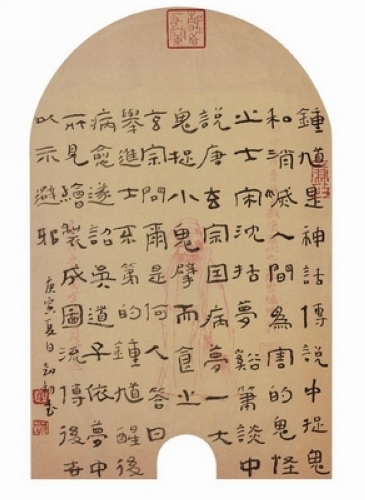 鍾馗是神話傳說中捉鬼
和消滅人間為害的鬼怪
之士宋沈括夢谿筆談中
說唐玄宗因病夢一大
鬼捉小鬼擘而食之
玄宗問爾是何人答曰
舉進士不第的鍾馗醒後
病愈遂詔吳道子依夢中
所見繪製成圖流傳後世
以示避邪
庚寅夏日